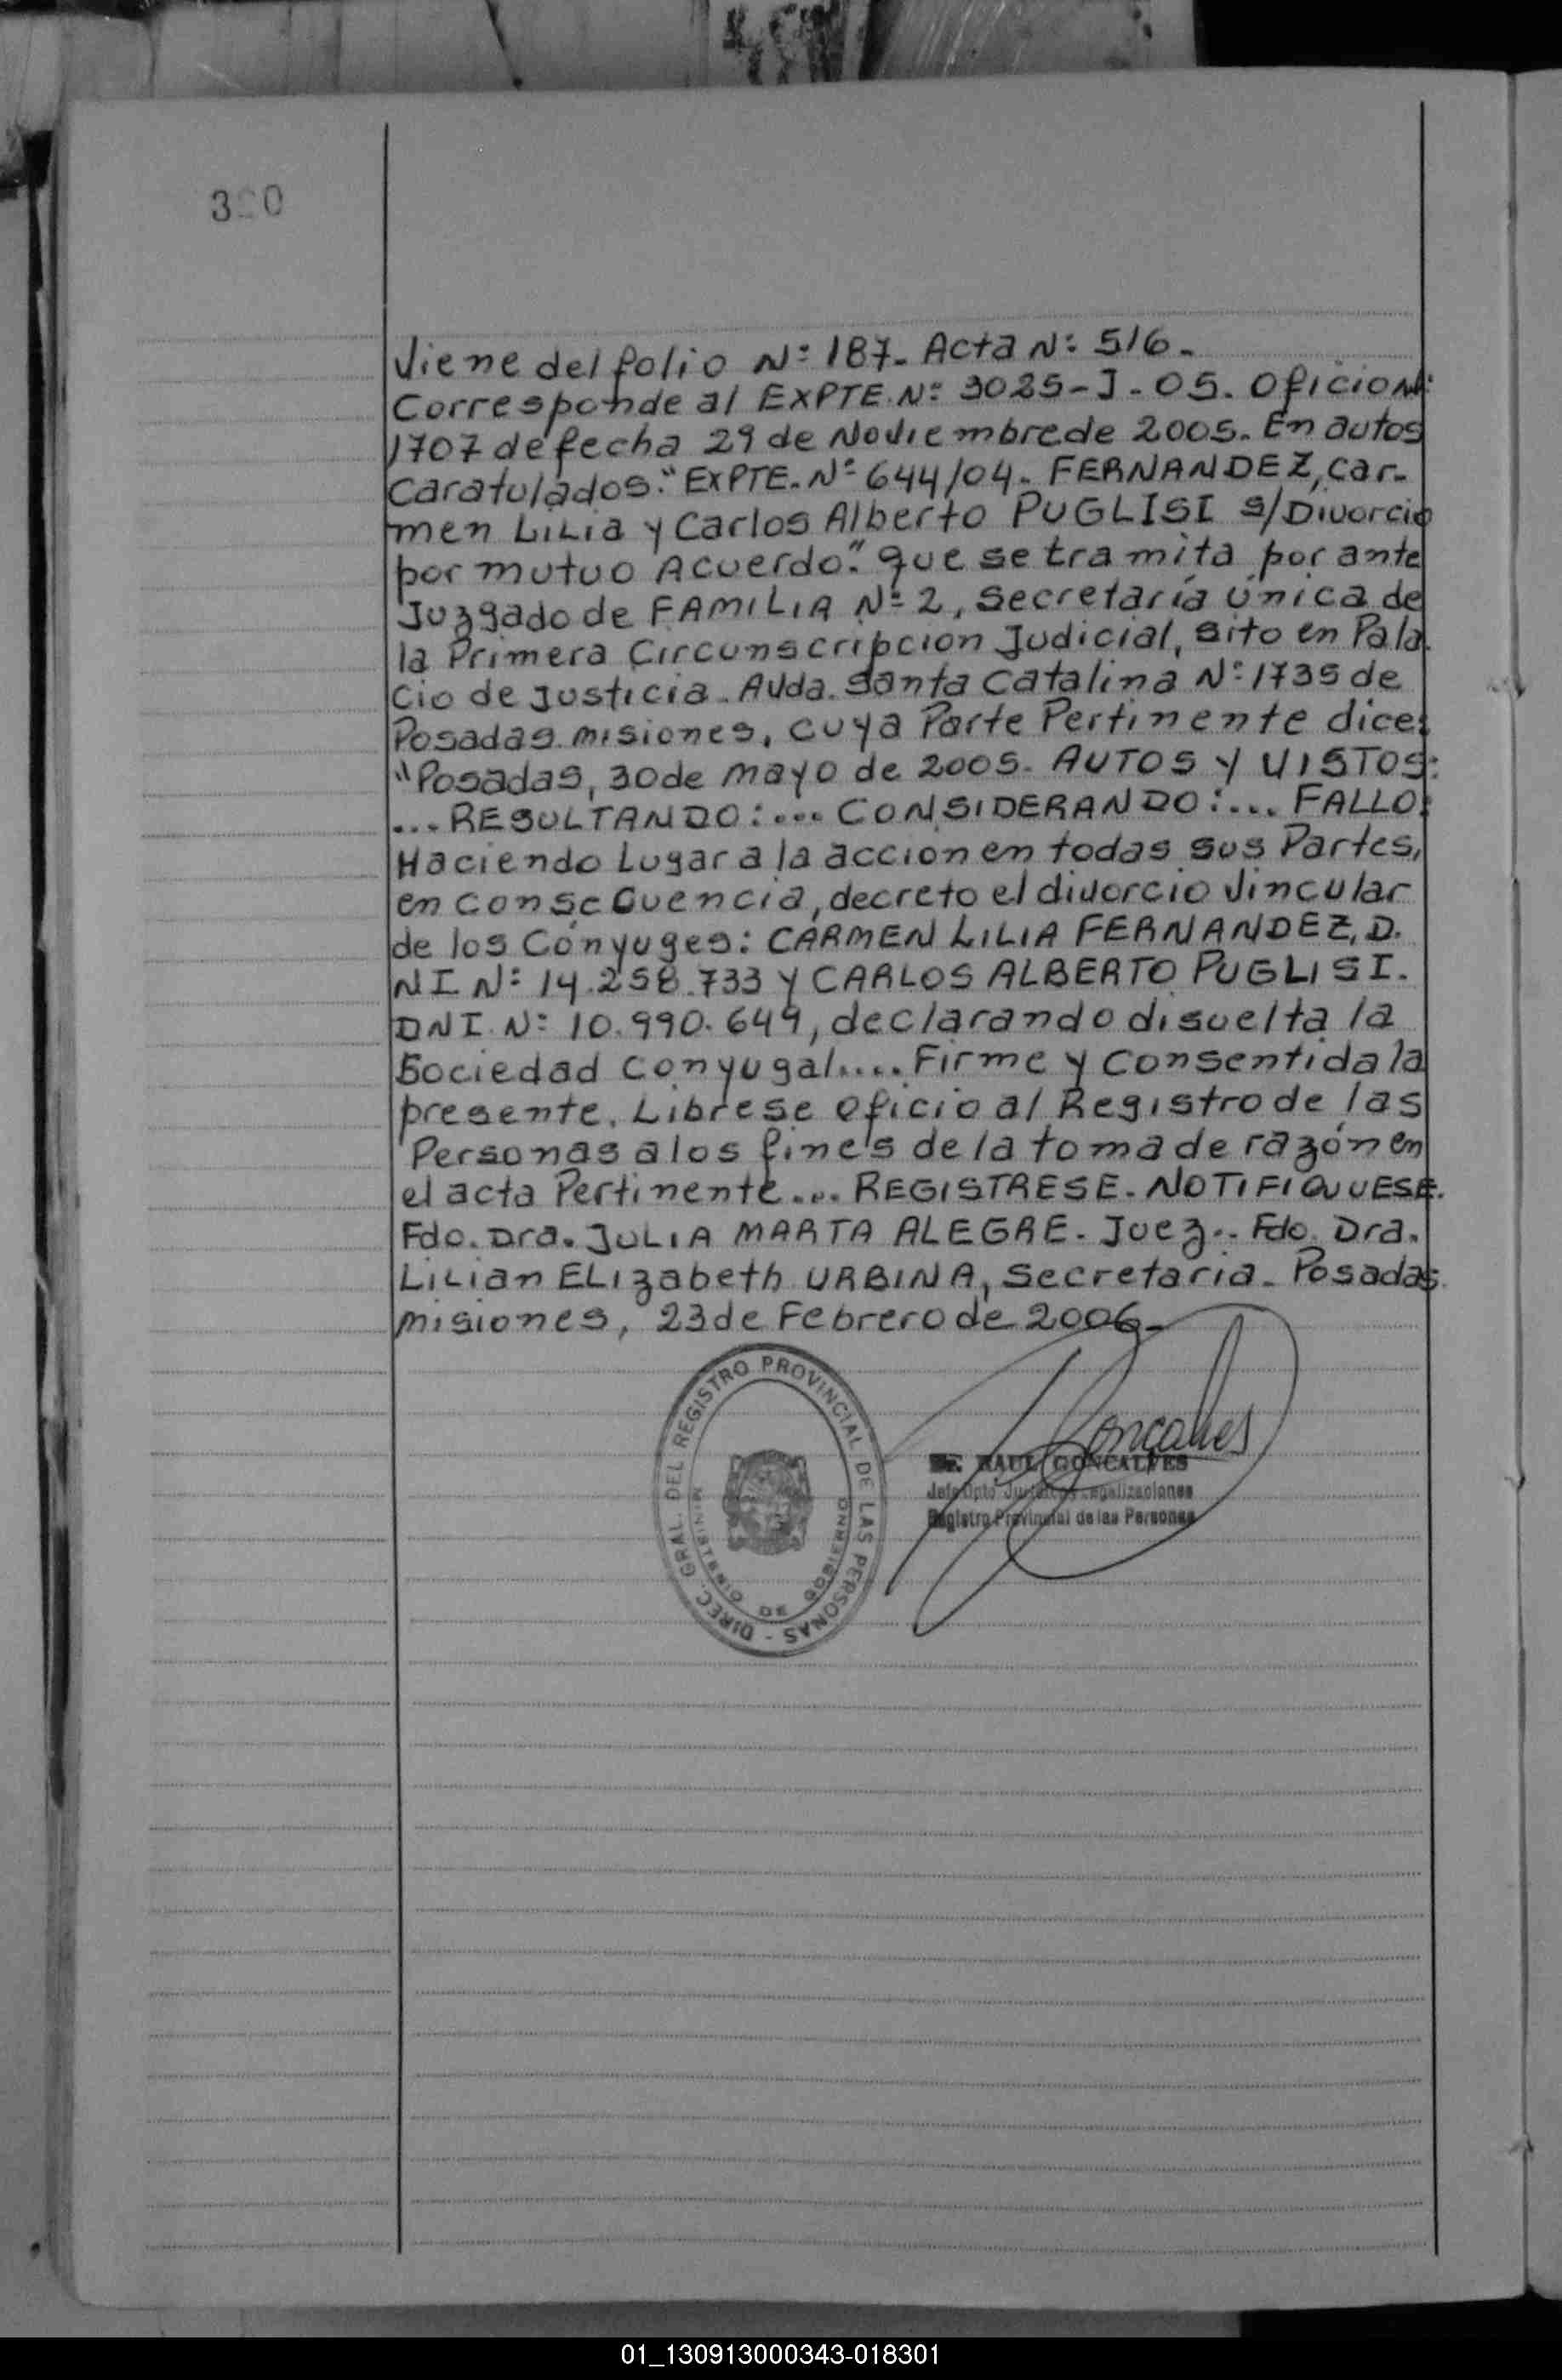 320
Viene del folio Nº 187- Acta Nº 516-
Corresponde al EXPTE. Nº 3025-J-05. Oficio Nº
1707 de fecha 29 de Noviembre de 2005. En autos
Caratulados: "EXPTE. Nº 644/04. FERNANDEZ, Car-
men Lilia y Carlos Alberto PUGLISI s/Divorcio
por mutuo Acuerdo." que se tramita por ante
Juzgado de FAMILIA Nº 2, Secretaría Única de
la Primera Circunscripcion Judicial, sito en Pala-
cio de Justicia. Avda. Santa Catalina Nº 1735 de
Posadas. Misiones, cuya Parte Pertinente dice:
"Posadas, 30 de mayo de 2005. AUTOS Y VISTOS:
...RESULTANDO:... CONSIDERANDO:... FALLO:
Haciendo Lugar a la accion en todas sus Partes,
en consecuencia, decreto el divorcio vincular
de los Cónyuges: CARMEN LILIA FERNANDEZ, D.
NI Nº 14.258.733 y CARLOS ALBERTO PUGLISI.
DNI Nº 10.990.649, declarando disuelta la
Sociedad conyugal.... Firme y consentida la
presente. Librese oficio al Registro de las
Personas a los fines de la toma de razón en
el acta Pertinente... REGISTRESE. NOTIFIQUESE.
Fdo. Dra. JULIA MARTA ALEGRE. Juez.. Fdo. Dra.
Lilian Elizabeth URBINA, Secretaria. Posadas
misiones, 23 de Febrero de 2006-
DIREC. GRAL. DEL REGISTRO PROVINCIAL DE LAS PERSONAS -
MINISTERIO DE GOBIERNO
Goncalves
Dr. RAUL GONCALVES
Jefe Dpto Legalizaciones
Registro Provincial de las Personas
01_130913000343-018301